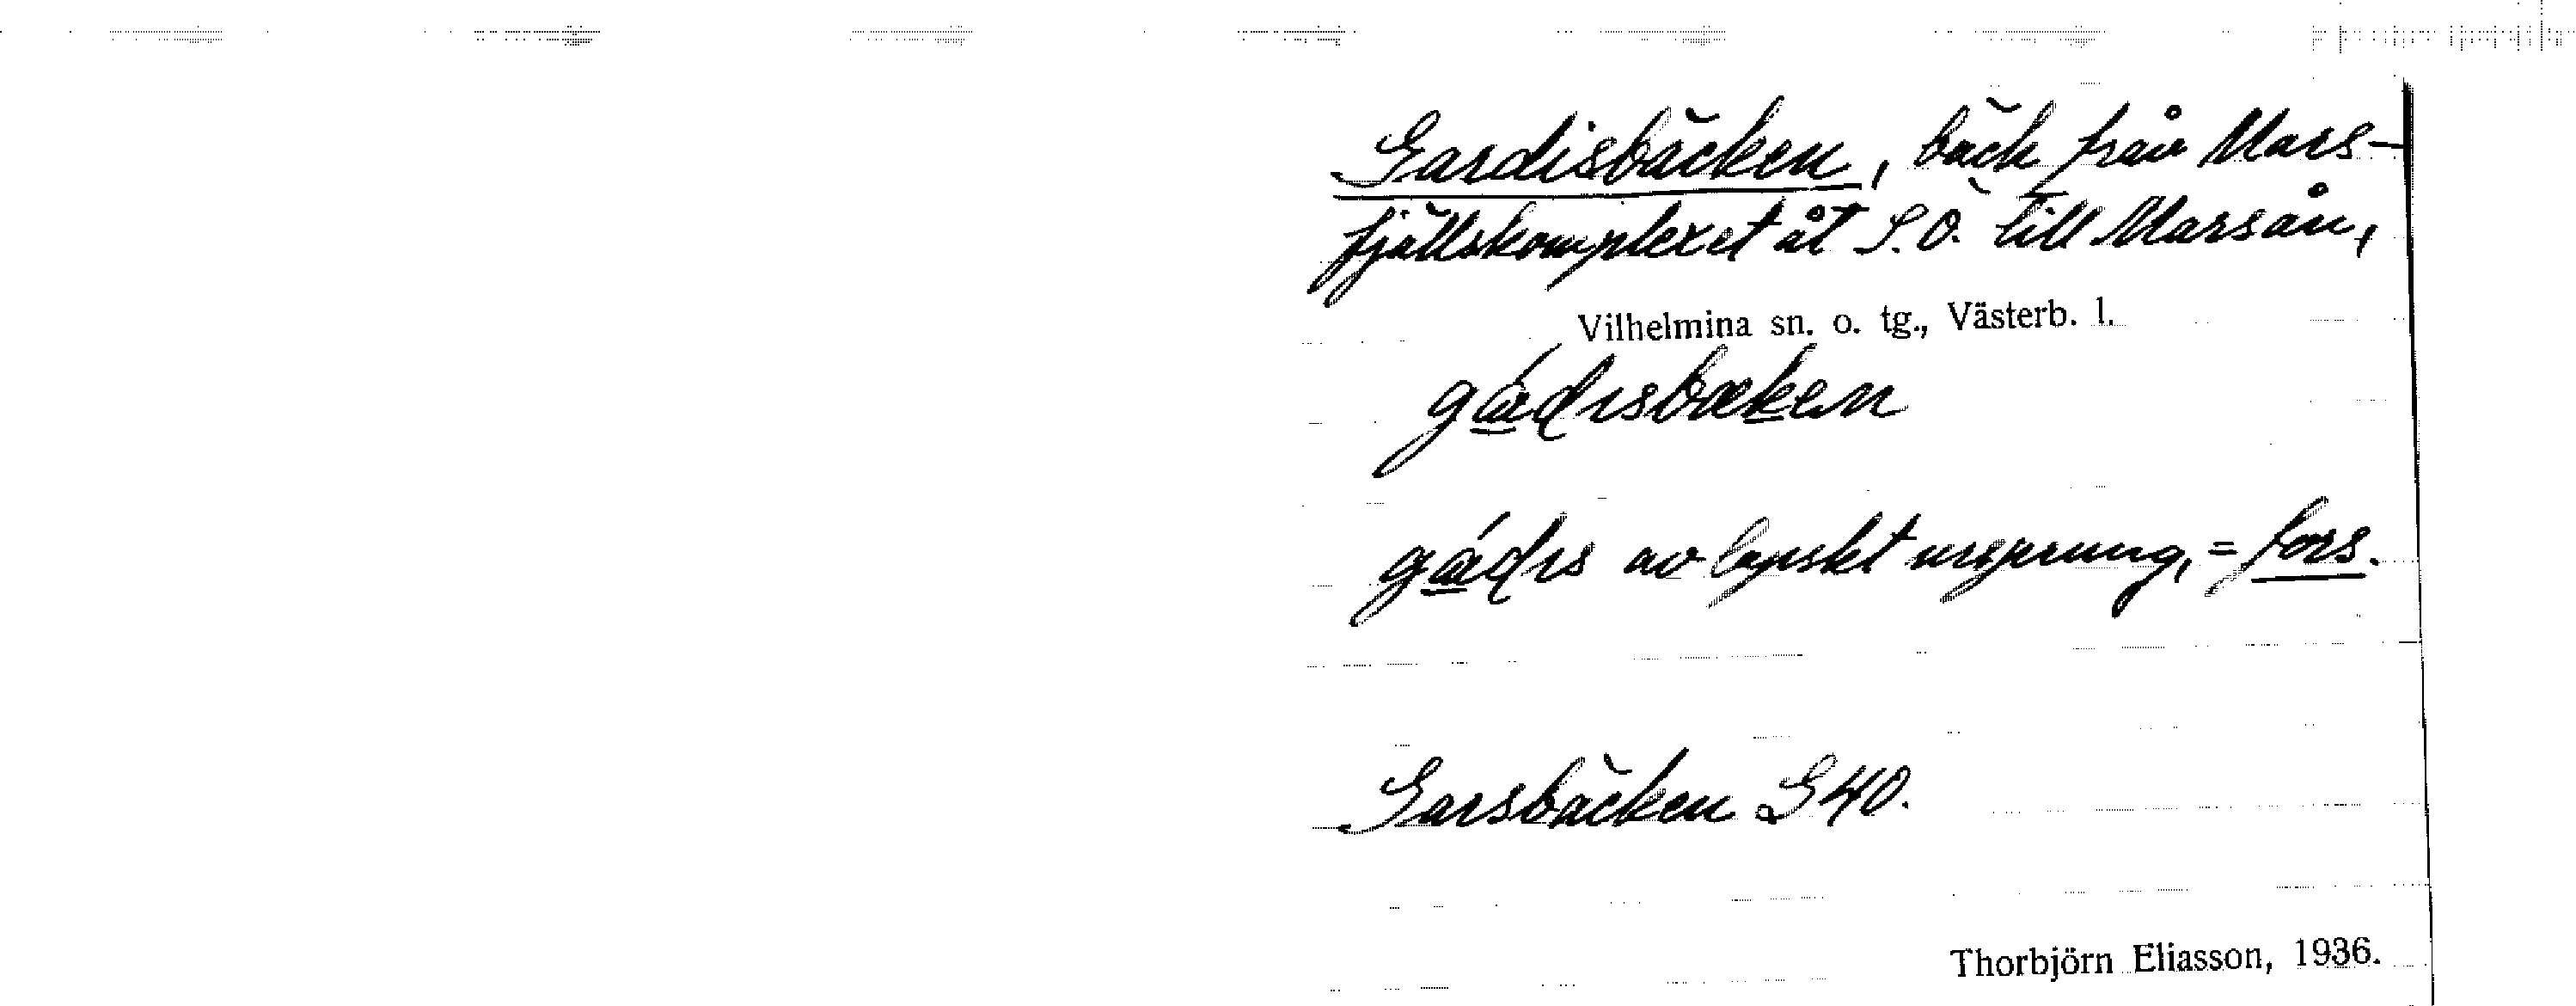 Gardisbäcken, bäck från Mars-
fjällskomplexet åt S.O. till Marsån,
Vilhelmina sn. o. tg., Västerb. l.
gádısbæken
gádıs av lapskt ursprung, = fors.
Garsbäcken G40.
Thorbjörn Eliasson, 1936.